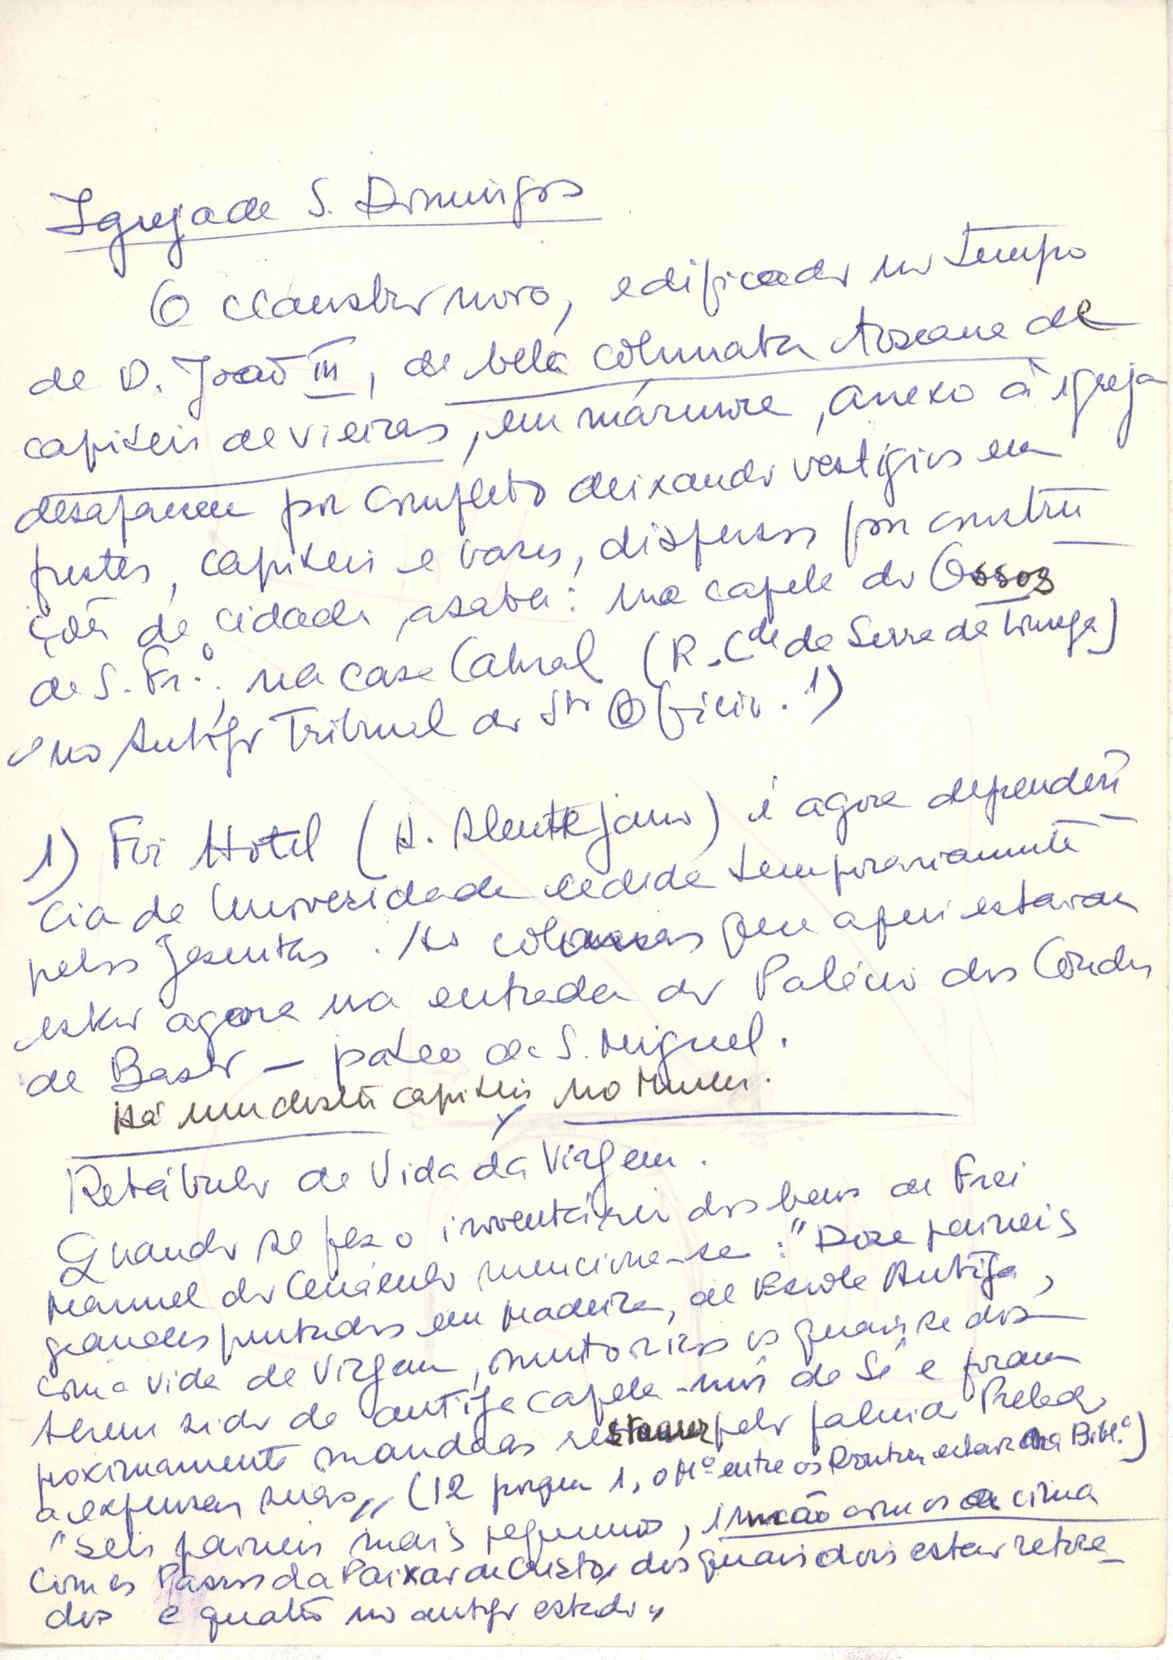 Igreja de S. Domingos
O claustro novo, edificado no tempo
de D. João III, de bela colunata toscana de
capiteis de vieiras, em mármore, anexo à igreja
desapareceu por completo deixando vestígios em
fustes, capiteis e bases, dispersos por constru
ções da cidade, a saber: na capela dos Ossos
de S. Fr.º, na casa Cabral (R. Cde da Serra da Tourega)
e no Antigo Tribunal do Stº Ofício. 1)
1) Foi Hotel (H. Alentejano) é agora dependên
cia da Universidade cedida temporariamente
pelos Jesuitas. As colunas que aqui estavam
estão agora na entrada do Palácio dos Condes
de Basto – pateo de S. Miguel.
Há um destes capiteis no Museu.
Retábulo da Vida da Virgem.
Quando se fez o inventário dos bens de Frei
Manuel do Cenáculo menciona-se: "Doze paineis
grandes pintados em madeira, de Escola Antiga,
com a vida da Virgem, muito ricos os quais se diz
terem sido da antiga capela-mór da Sé e foram
proximamente mandados restaurar pelo falecido Prelado
a expensas suas" (12 porque 1, o Mº entre os Doutores estava na Bibl.ª)
"Seis paineis mais pequenos, irmãos com os de cima
com os Passos da Paixão de Cristo, dos quais dois estão retoca-
dos e quatro no antigo estado"